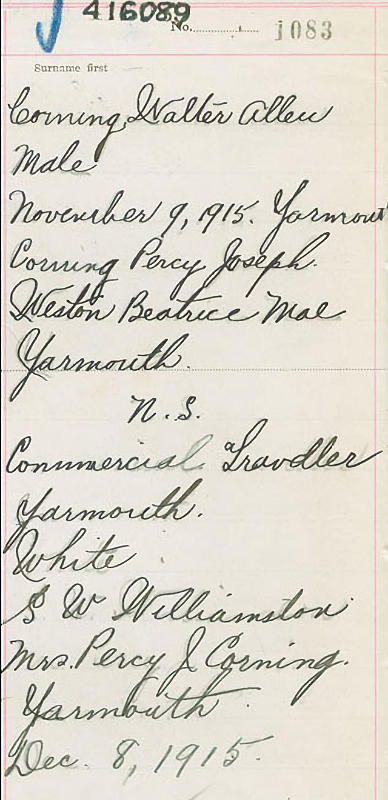 416089
No. 1083
Surname first
Corning, Walter Allen
Male
November 9, 1915. Yarmout
Corning Percy Joseph.
Weston Beatrice Mae
Yarmouth.
N.S.
Commercial Travdler
Yarmouth.
White
S W Williamston
Mrs. Percy J. Corning.
Yarmouth.
Dec. 8, 1915.